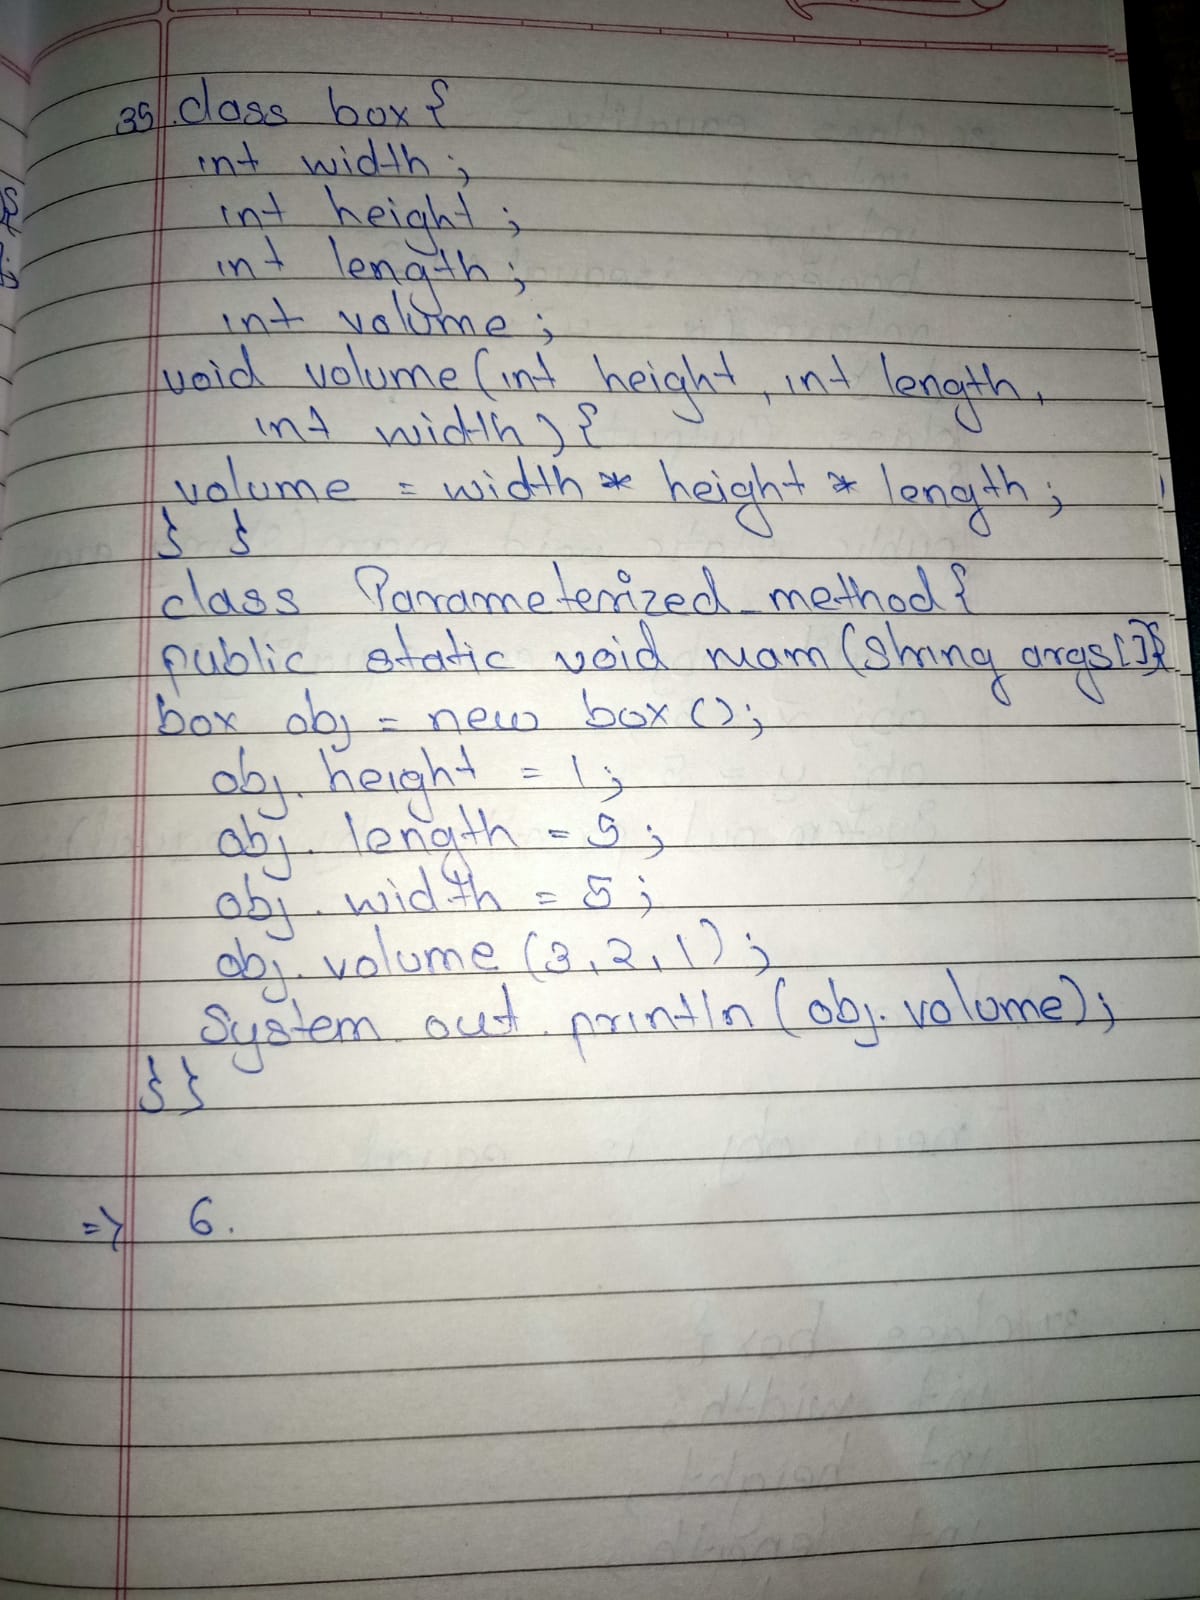 35. class box {
int width ;
int height ;
int length ;
int volume ;
void volume (int height, int length,
int width) {
volume = width * height * length ;
} }
class Parameterized_method {
public static void main (String args[]{
box obj = new box () ;
obj. height = 1 ;
obj. length = 5 ;
obj. width = 5 ;
obj. volume (3, 2, 1) ;
System. out. println (obj. volume) ;
} }
=> 6.